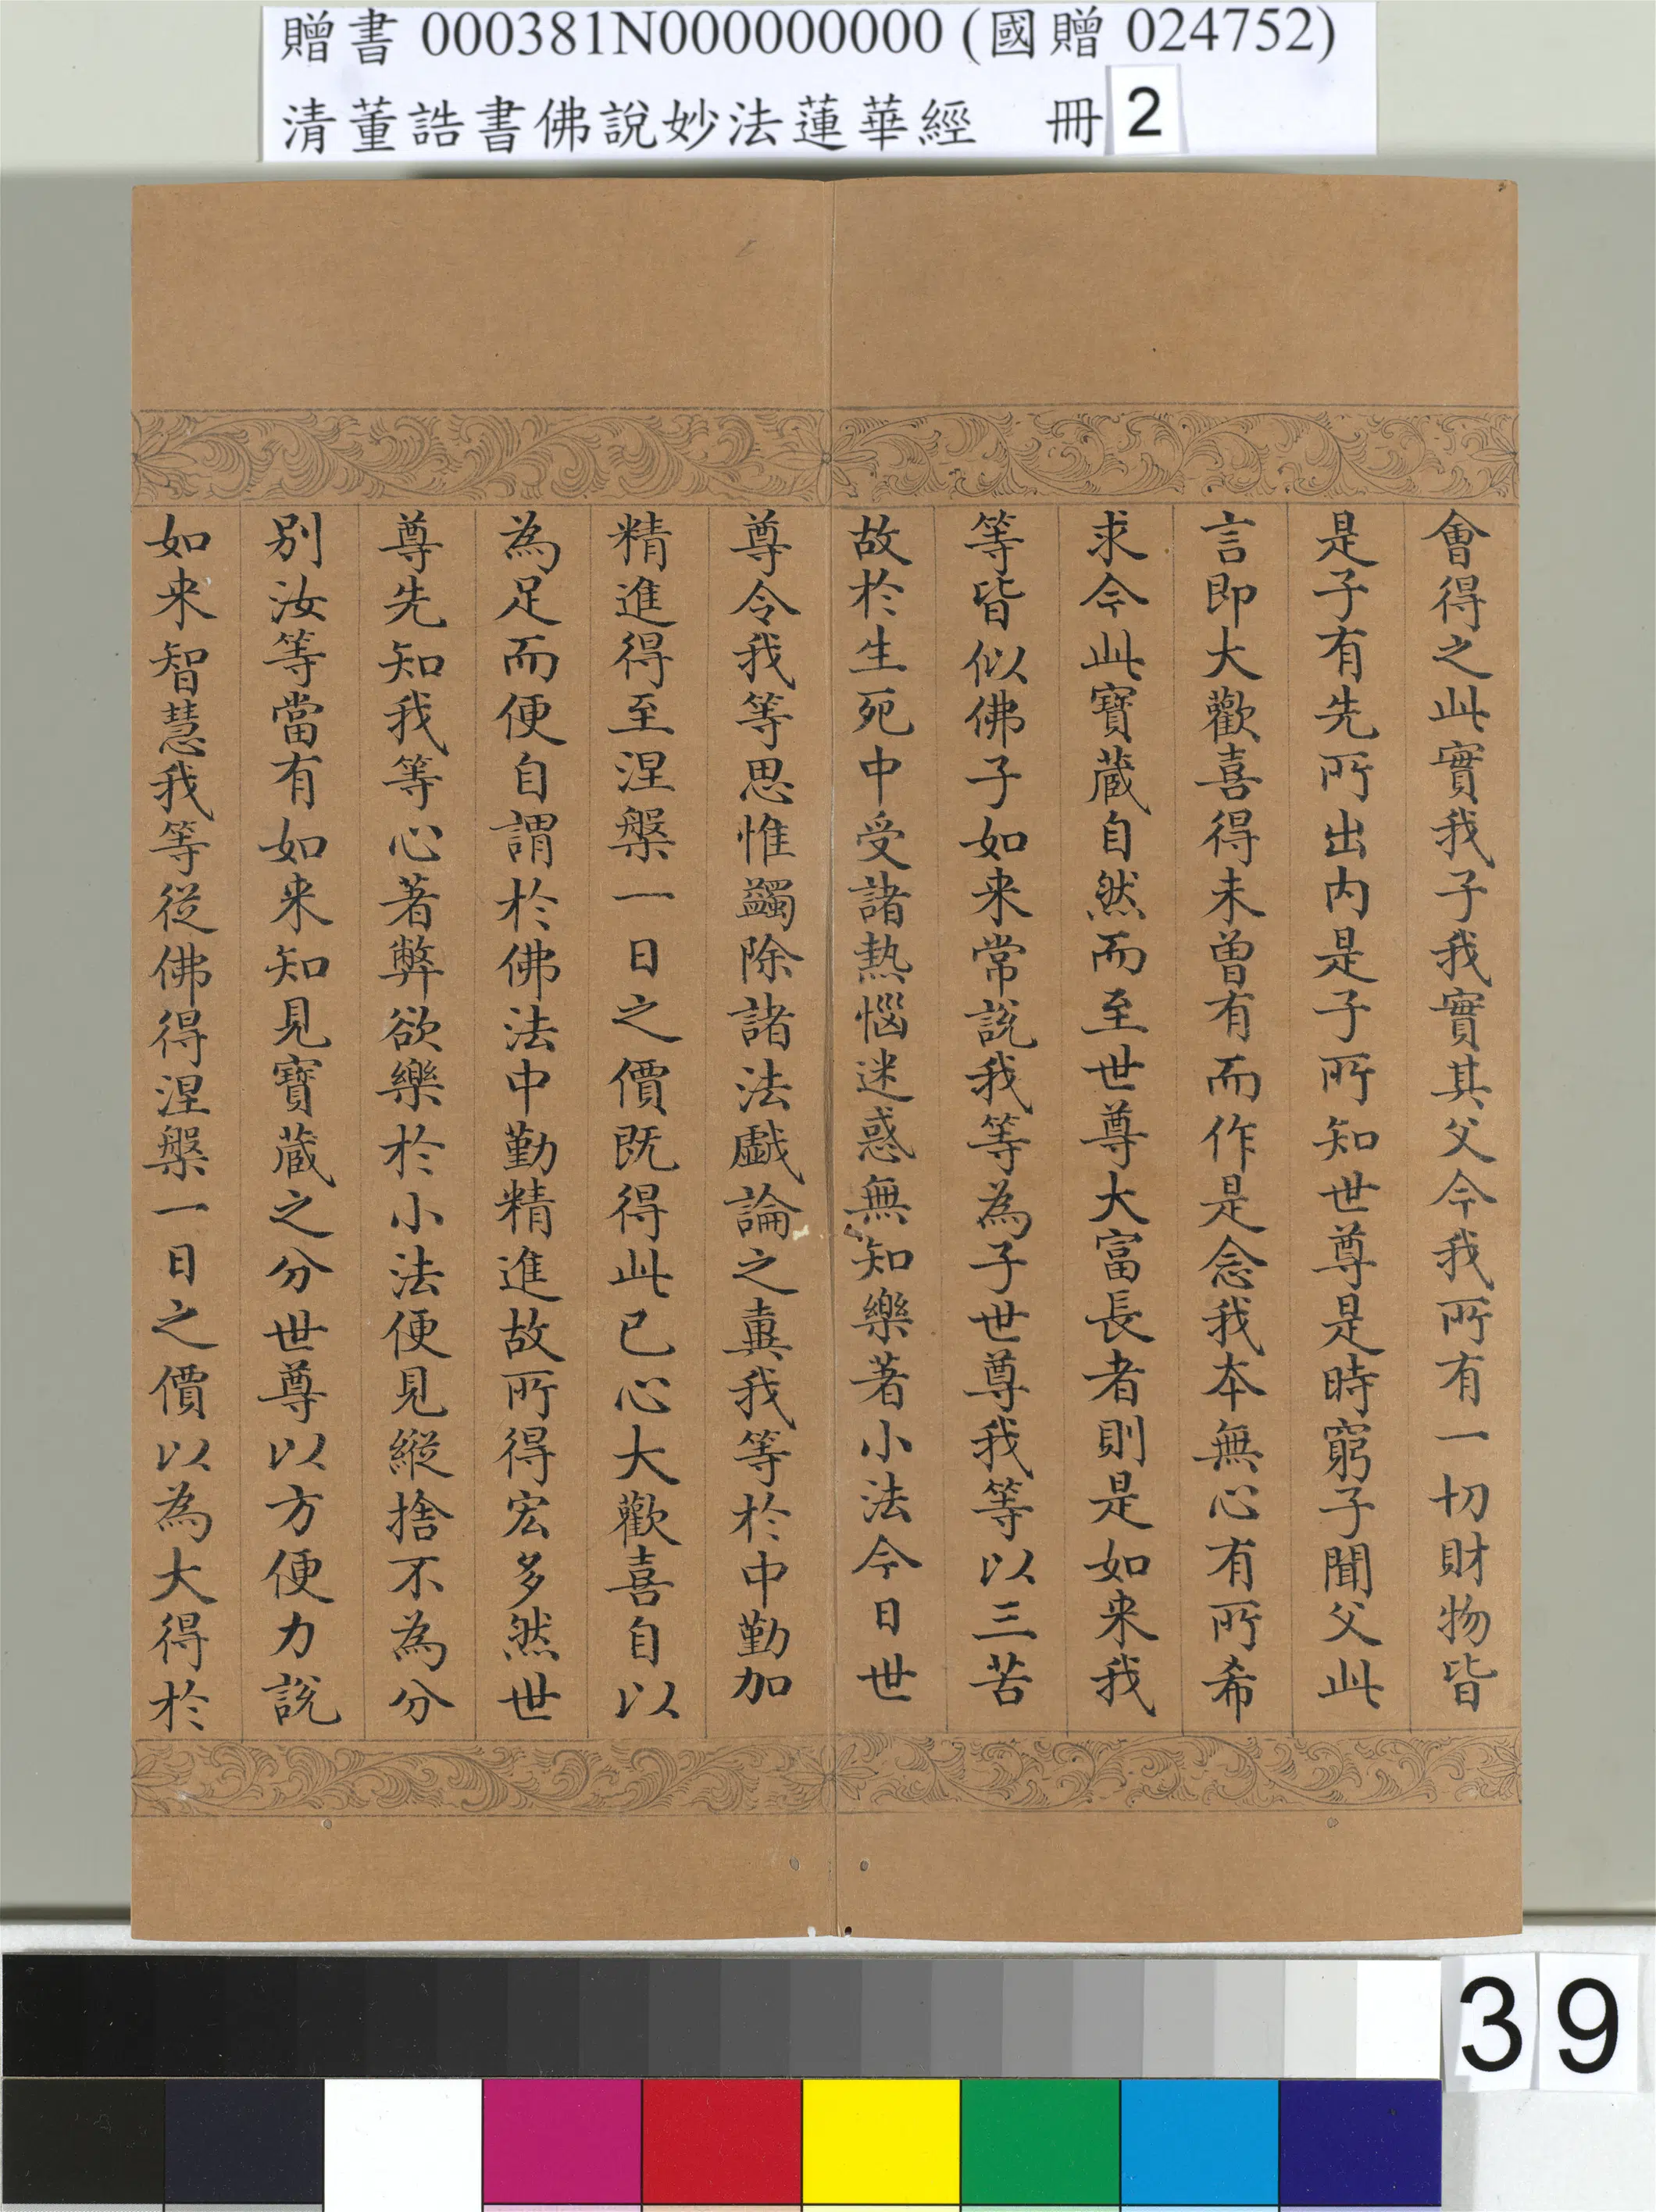 贈書 000381N000000000 (國贈 024752)
清董誥書佛說妙法蓮華經 冊 2
會得之此實我子我實其父今我所有一切財物皆
是子有先所出内是子所知世尊是時窮子聞父此
言即大歡喜得未曾有而作是念我本無心有所希
求今此寶蔵自然而至世尊大富長者則是如来我
等皆似佛子如来常説我等為子世尊我等以三苦
故於生死中受諸熱惱迷惑無知樂著小法今日世
尊令我等思惟蠲除諸法戯論之糞我等於中勤加
精進得至涅槃一日之價既得此已心大歡喜自以
為足而便自謂於佛法中勤精進故所得宏多然世
尊先知我等心著弊欲樂於小法便見縱捨不為分
别汝等當有如来知見寶蔵之分世尊以方便力説
如来智慧我等從佛得涅槃一日之價以為大得於
39